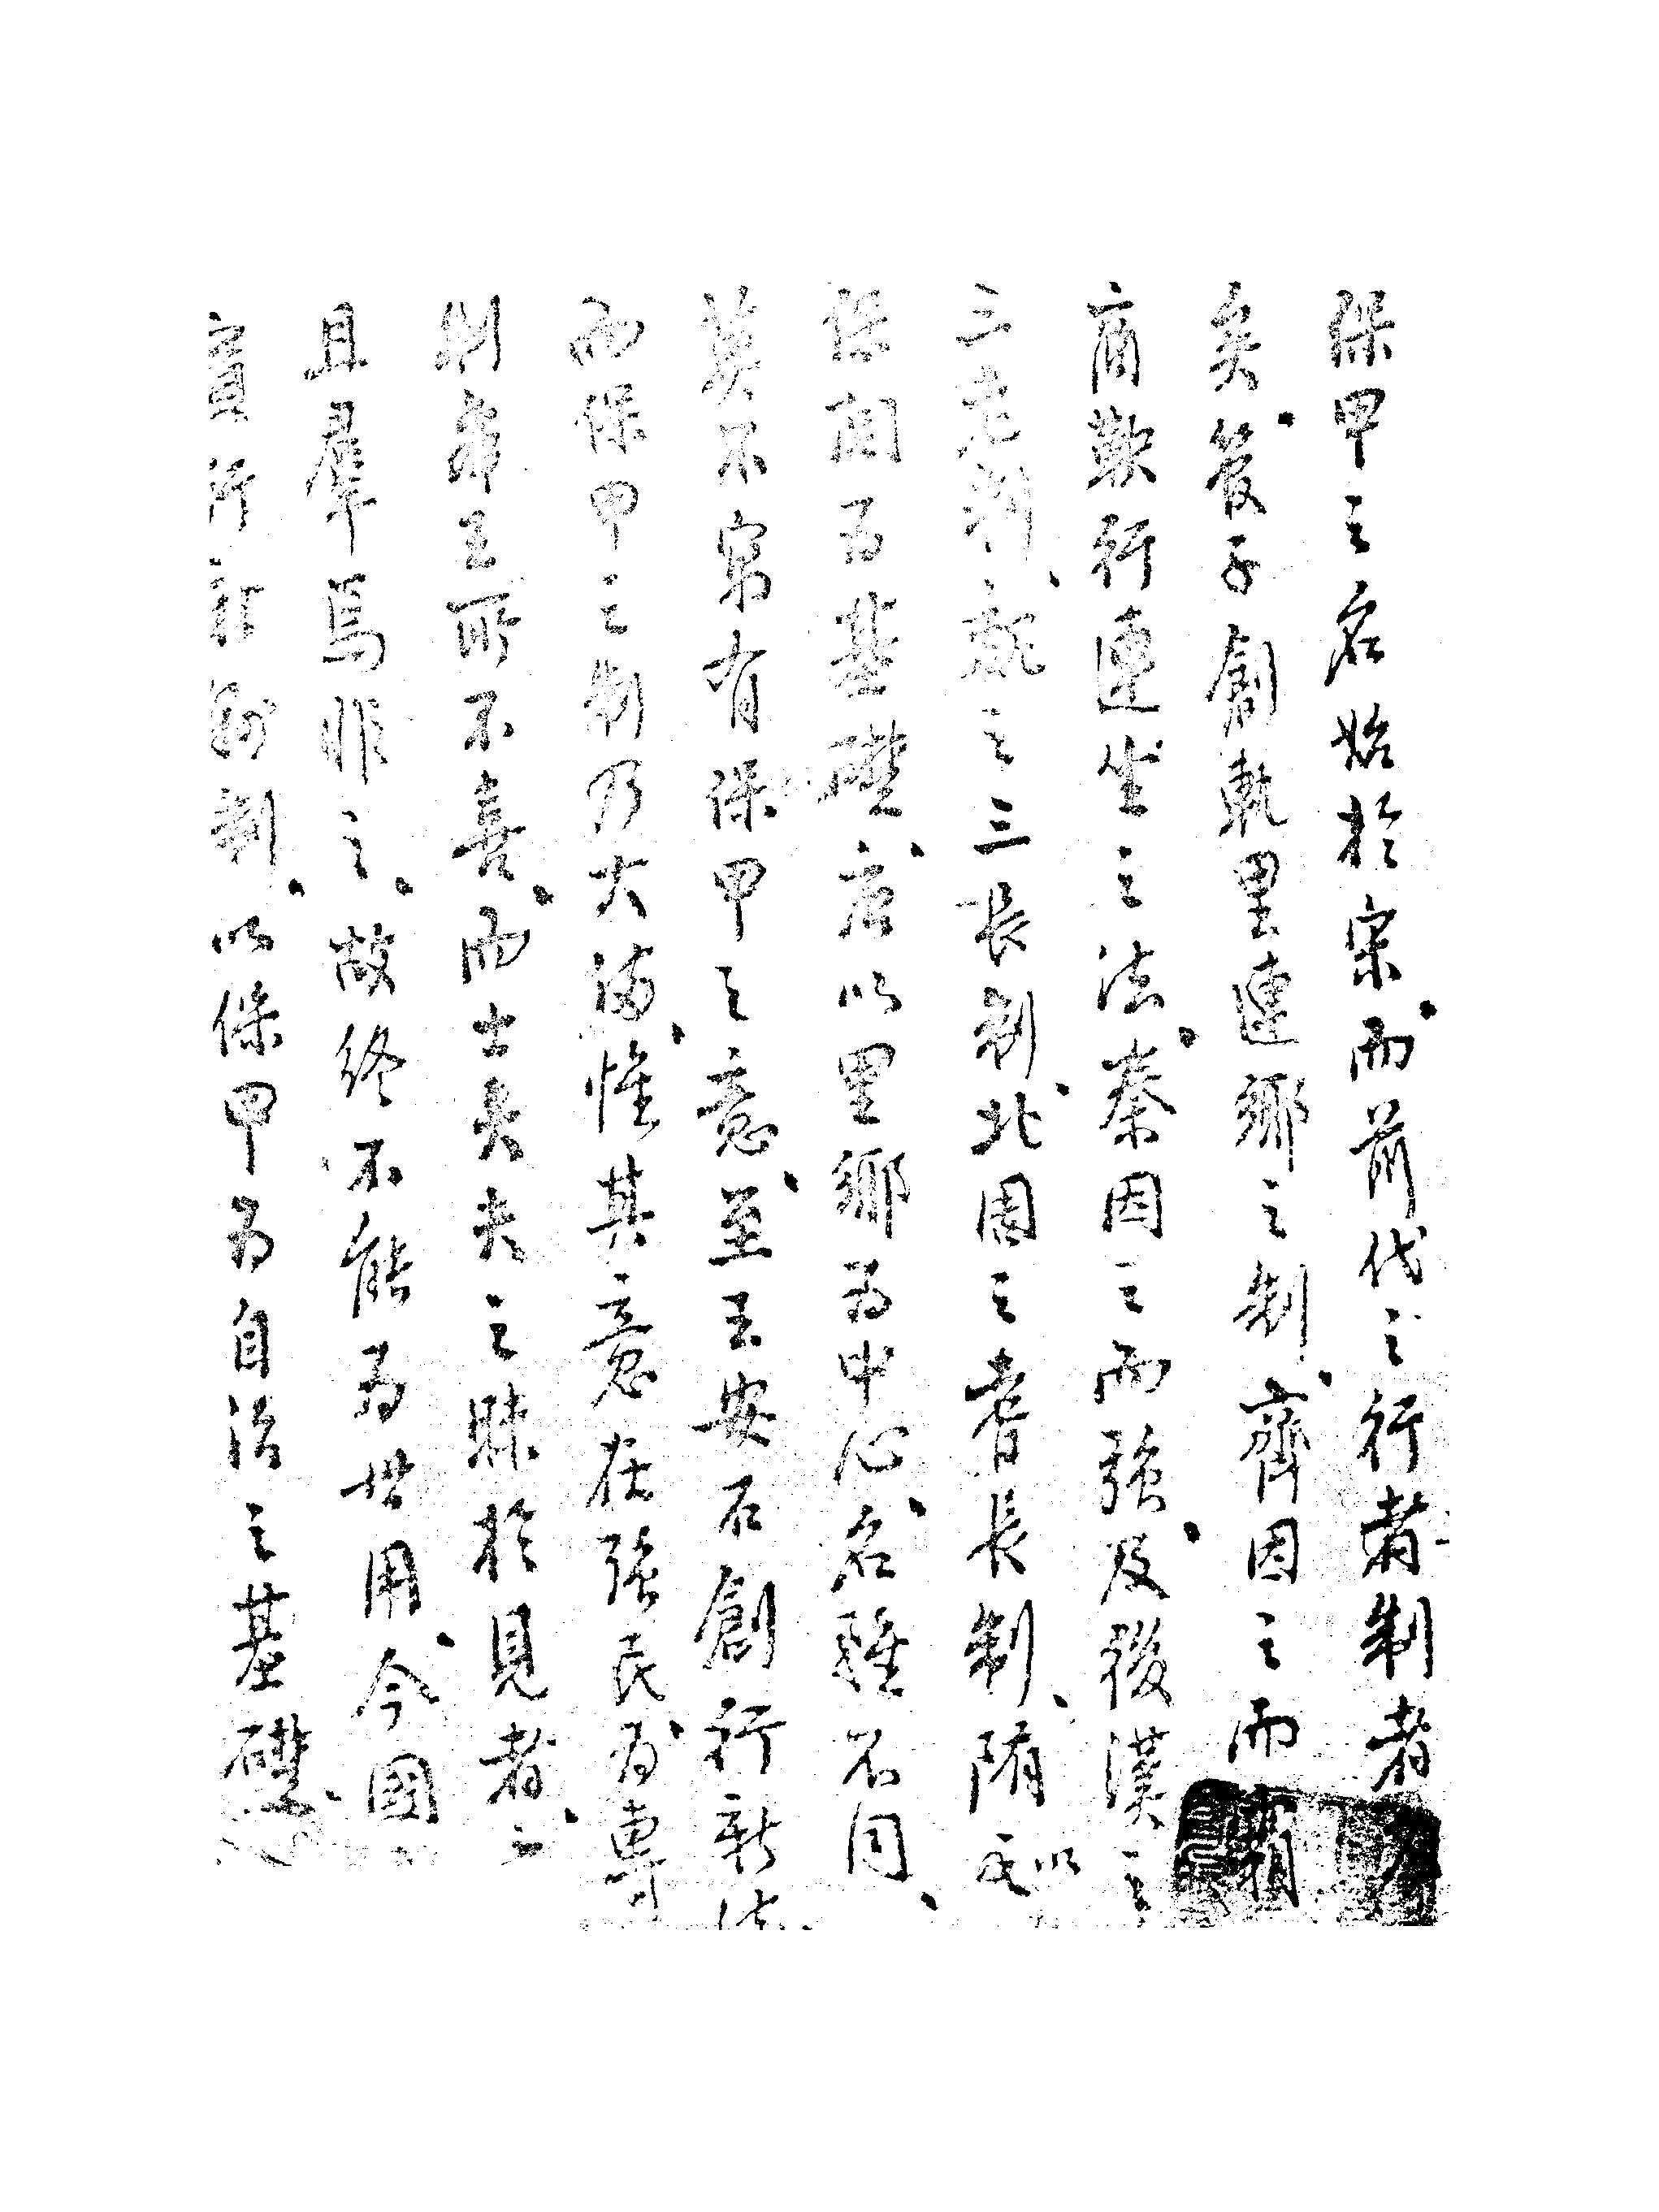 保甲之名始於宋、而前代之行者制者
矣、管子創軌里連鄉之制、齊因之而霸
商鞅行連坐之法、秦因之而強、及後漢之
三老制、魏之三長制、北周之耆長制、隋氏以
保閭為基礎、唐以里鄉為中心、名雖不同、
莫不寓有保甲之意、至王安石創行新法
而保甲之制乃大備、惟其意在強民、為專
制帝王所不喜、而士大夫之昧於見者、
且羣焉非之、故終不能為世用、今國
實行新縣制、以保甲為自治之基礎、